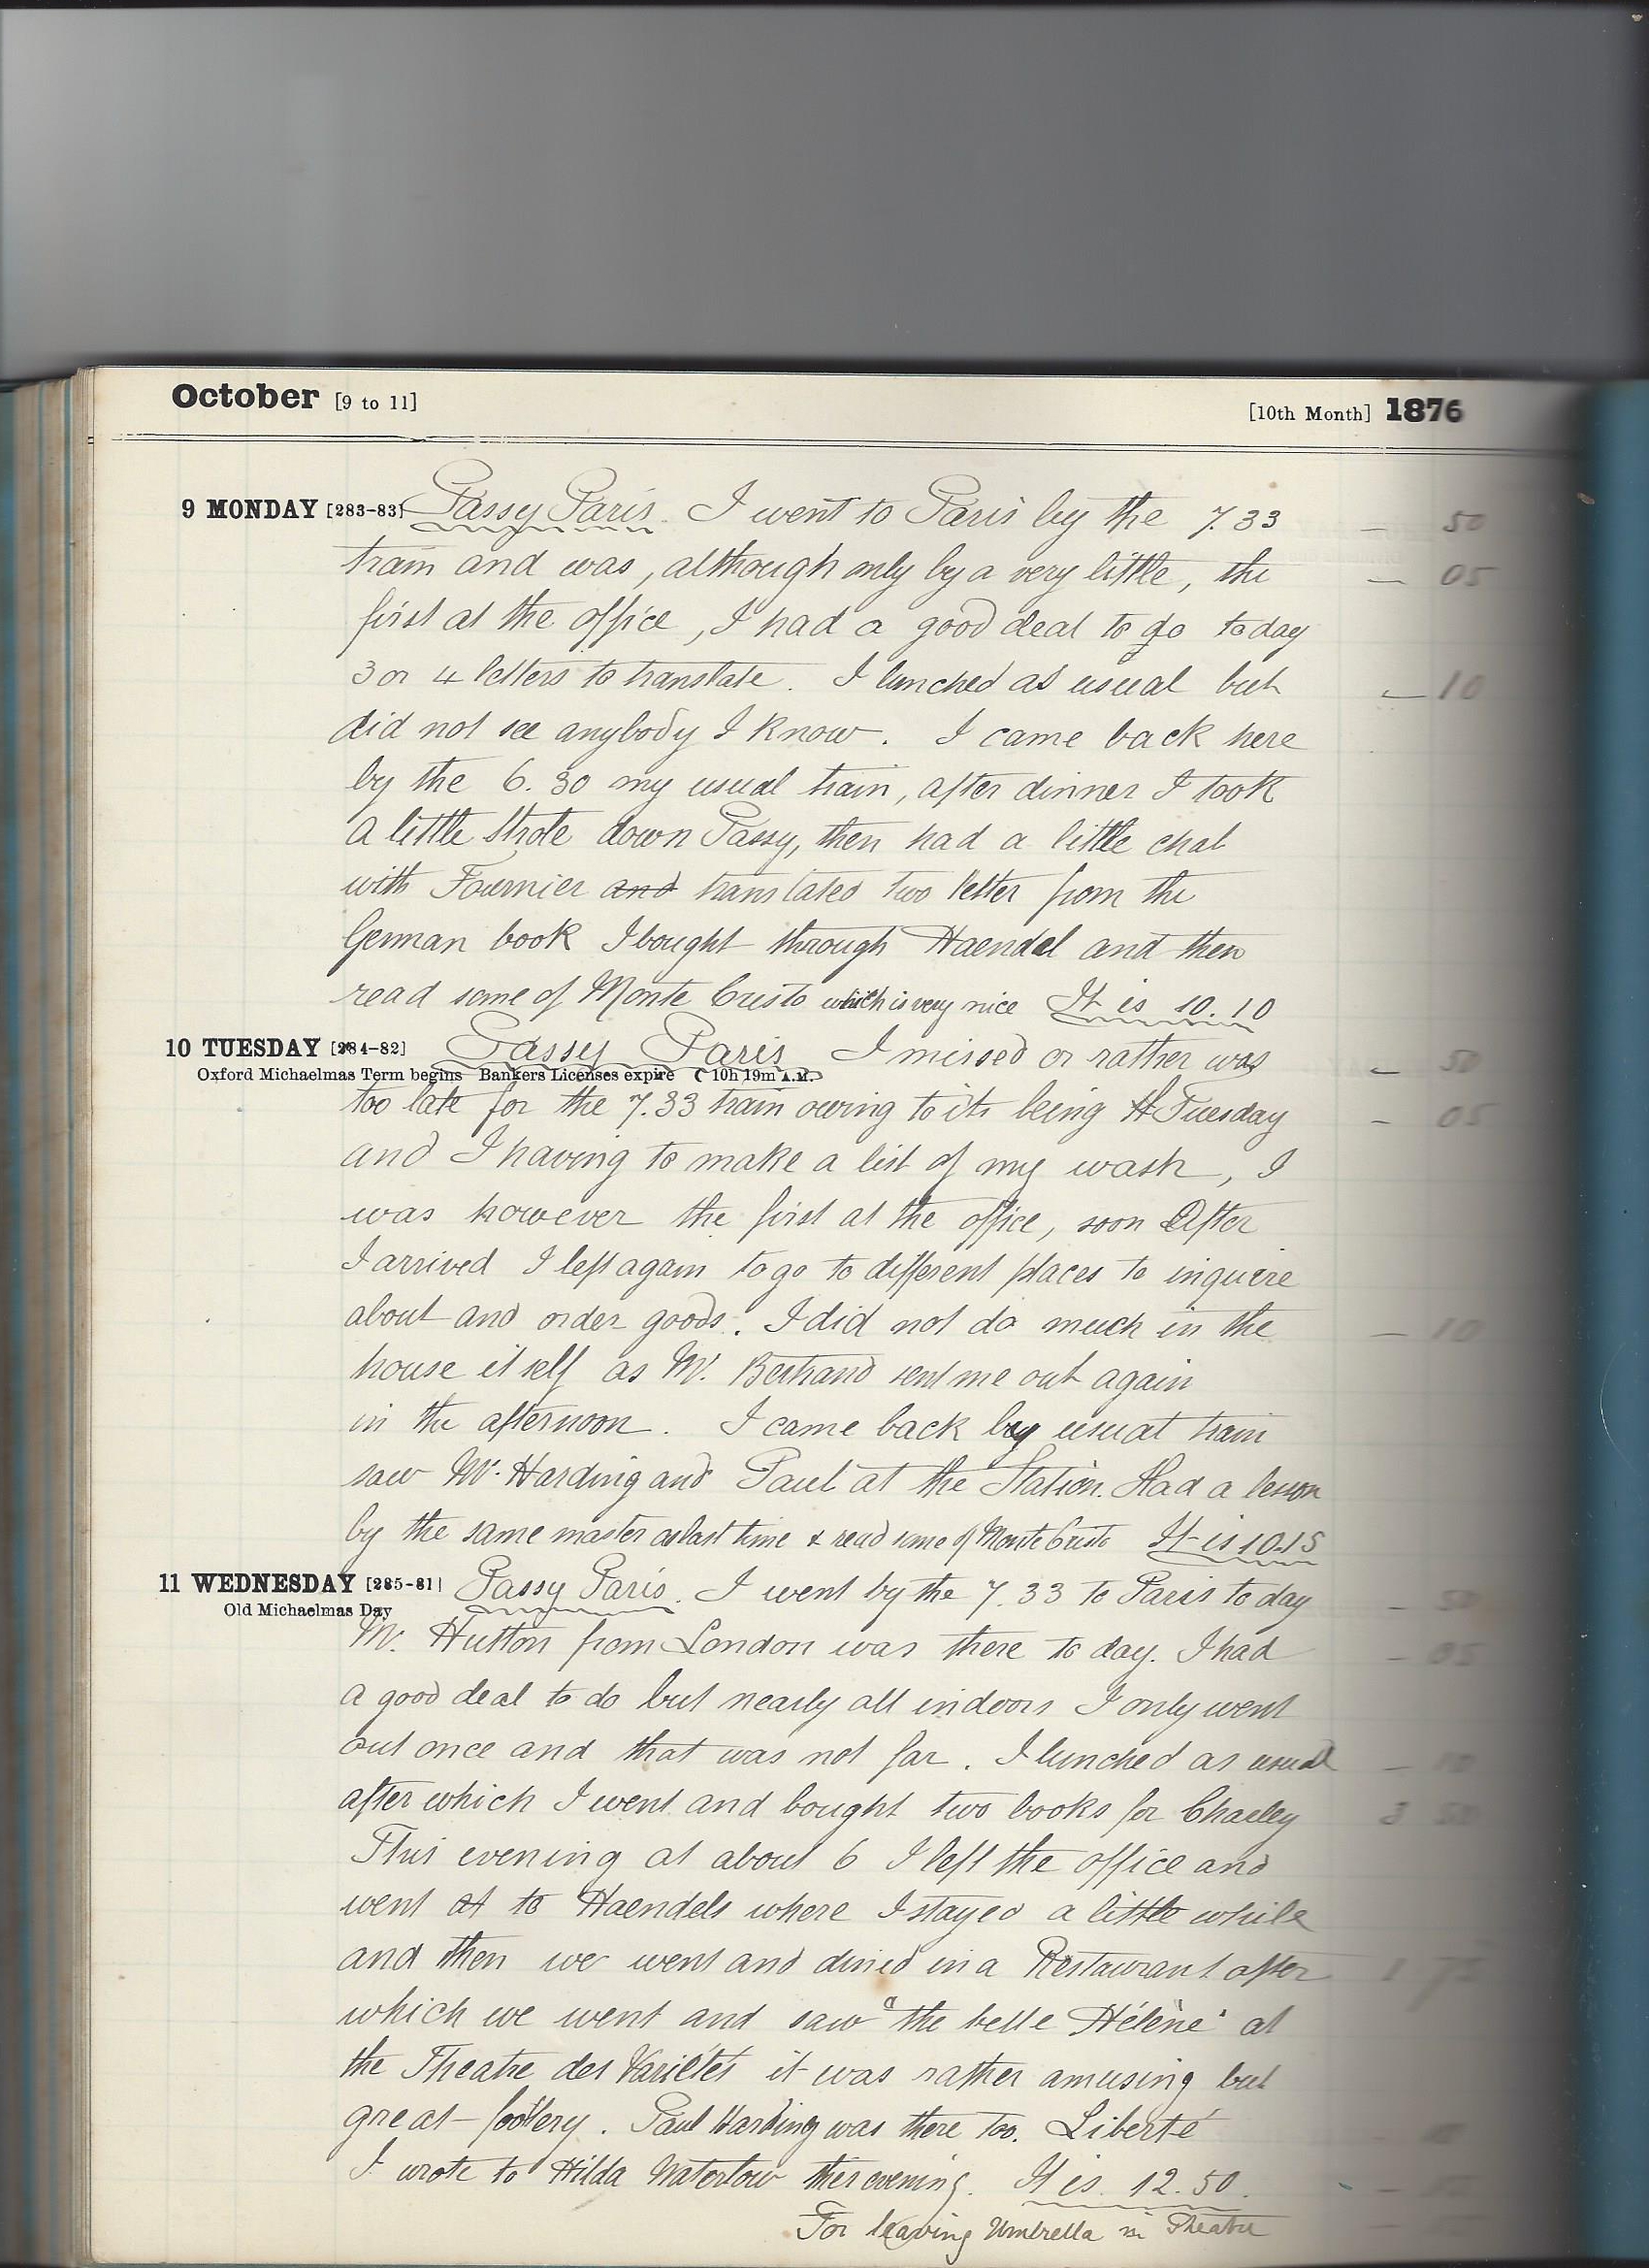 October [9 to 11] [10th Month] 1876
9 MONDAY [283-83] Passy Paris. I went to Paris by the 7.33 — 50
train and was, although only by a very little, the — 05
first at the office, I had a good deal to go to day
3 or 4 letters to translate. I lunched as usual but — 10
did not see anybody I know. I came back here
by the 6.30 my usual train, after dinner I took
a little strole down Passy, then had a little chat
with Fournier and translated two letter from the
German book I bought through Haendel and then
read some of Monte Cristo which is very nice It is 10.10
10 TUESDAY [284-82] Passy Paris I missed or rather was — 50
Oxford Michaelmas Term begins Bankers Licenses expire ( 10h 19m A.M.
too late for the 7.33 train owing to its being Tuesday — 05
and I having to make a list of my wash, I
was however the first at the office, soon After
I arrived I left again to go to different places to inquire
about and order goods. I did not do much in the — 10
house it self as Mr. Bertrand sent me out again
in the afternoon. I came back by usual train
saw Mr. Harding and Paul at the Station. Had a lesson
by the same master as last time & read some of Monte Cristo It is 10.15
11 WEDNESDAY [285-81] Passy Paris. I went by the 7.33 to Paris to day — 50
Old Michaelmas Day
Mr. Hutton from London was there to day. I had — 05
a good deal to do but nearly all indoors I only went
out once and that was not far. I lunched as usual — 10
after which I went and bought two books for Charley 3 50
This evening at about 6 I left the office and
went at to Haendels where I stayed a little while
and then we went and dined in a Restaurant after 1 75
which we went and saw "the belle Hélène" at
the Theatre des Variétés it was rather amusing but
great foolery. Paul Harding was there too. Liberté
I wrote to Hilda Waterlow this evening. It is 12.50.
For leaving Umbrella in Theatre